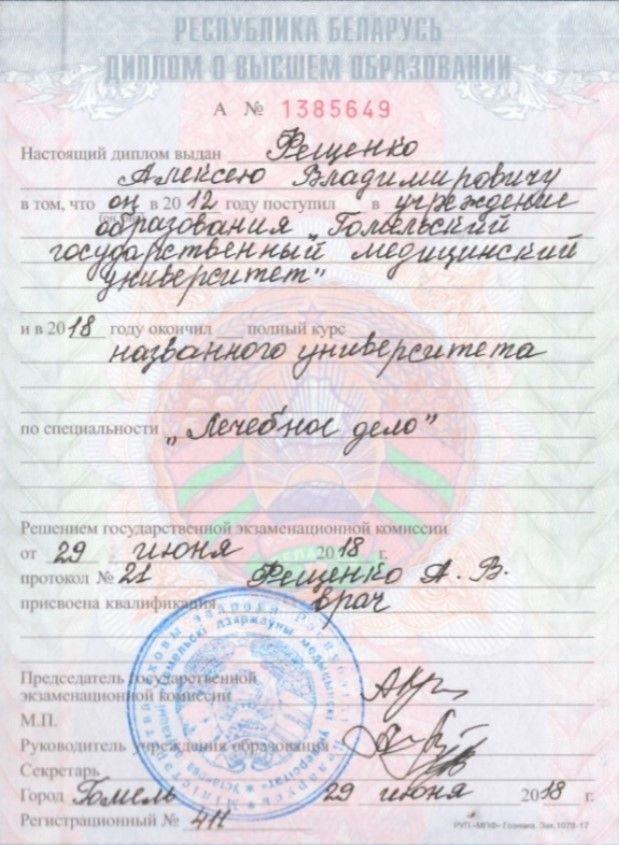 РЕСПУБЛИКА БЕЛАРУСЬ
ДИПЛОМ О ВЫСШЕМ ОБРАЗОВАНИИ
А № 1385649
Настоящий диплом выдан Фещенко
Алексею Владимировичу
в том, что он в 2012 году поступил в учреждение
образования „Гомельский
государственный медицинский
университет"
и в 2018 году окончил полный курс
названного университета
по специальности „Лечебное дело"
Решением государственной экзаменационной комиссии
от 29 июня 2018 г.
протокол № 21 Фещенко А. В.
присвоена квалификация врач
Председатель государственной
экзаменационной комиссии
М.П.
Руководитель учреждения образования
Секретарь
Город Гомель 29 июня 2018 г.
Регистрационный № 411
РУП «МПФ» Гознака. Зак.1078-17